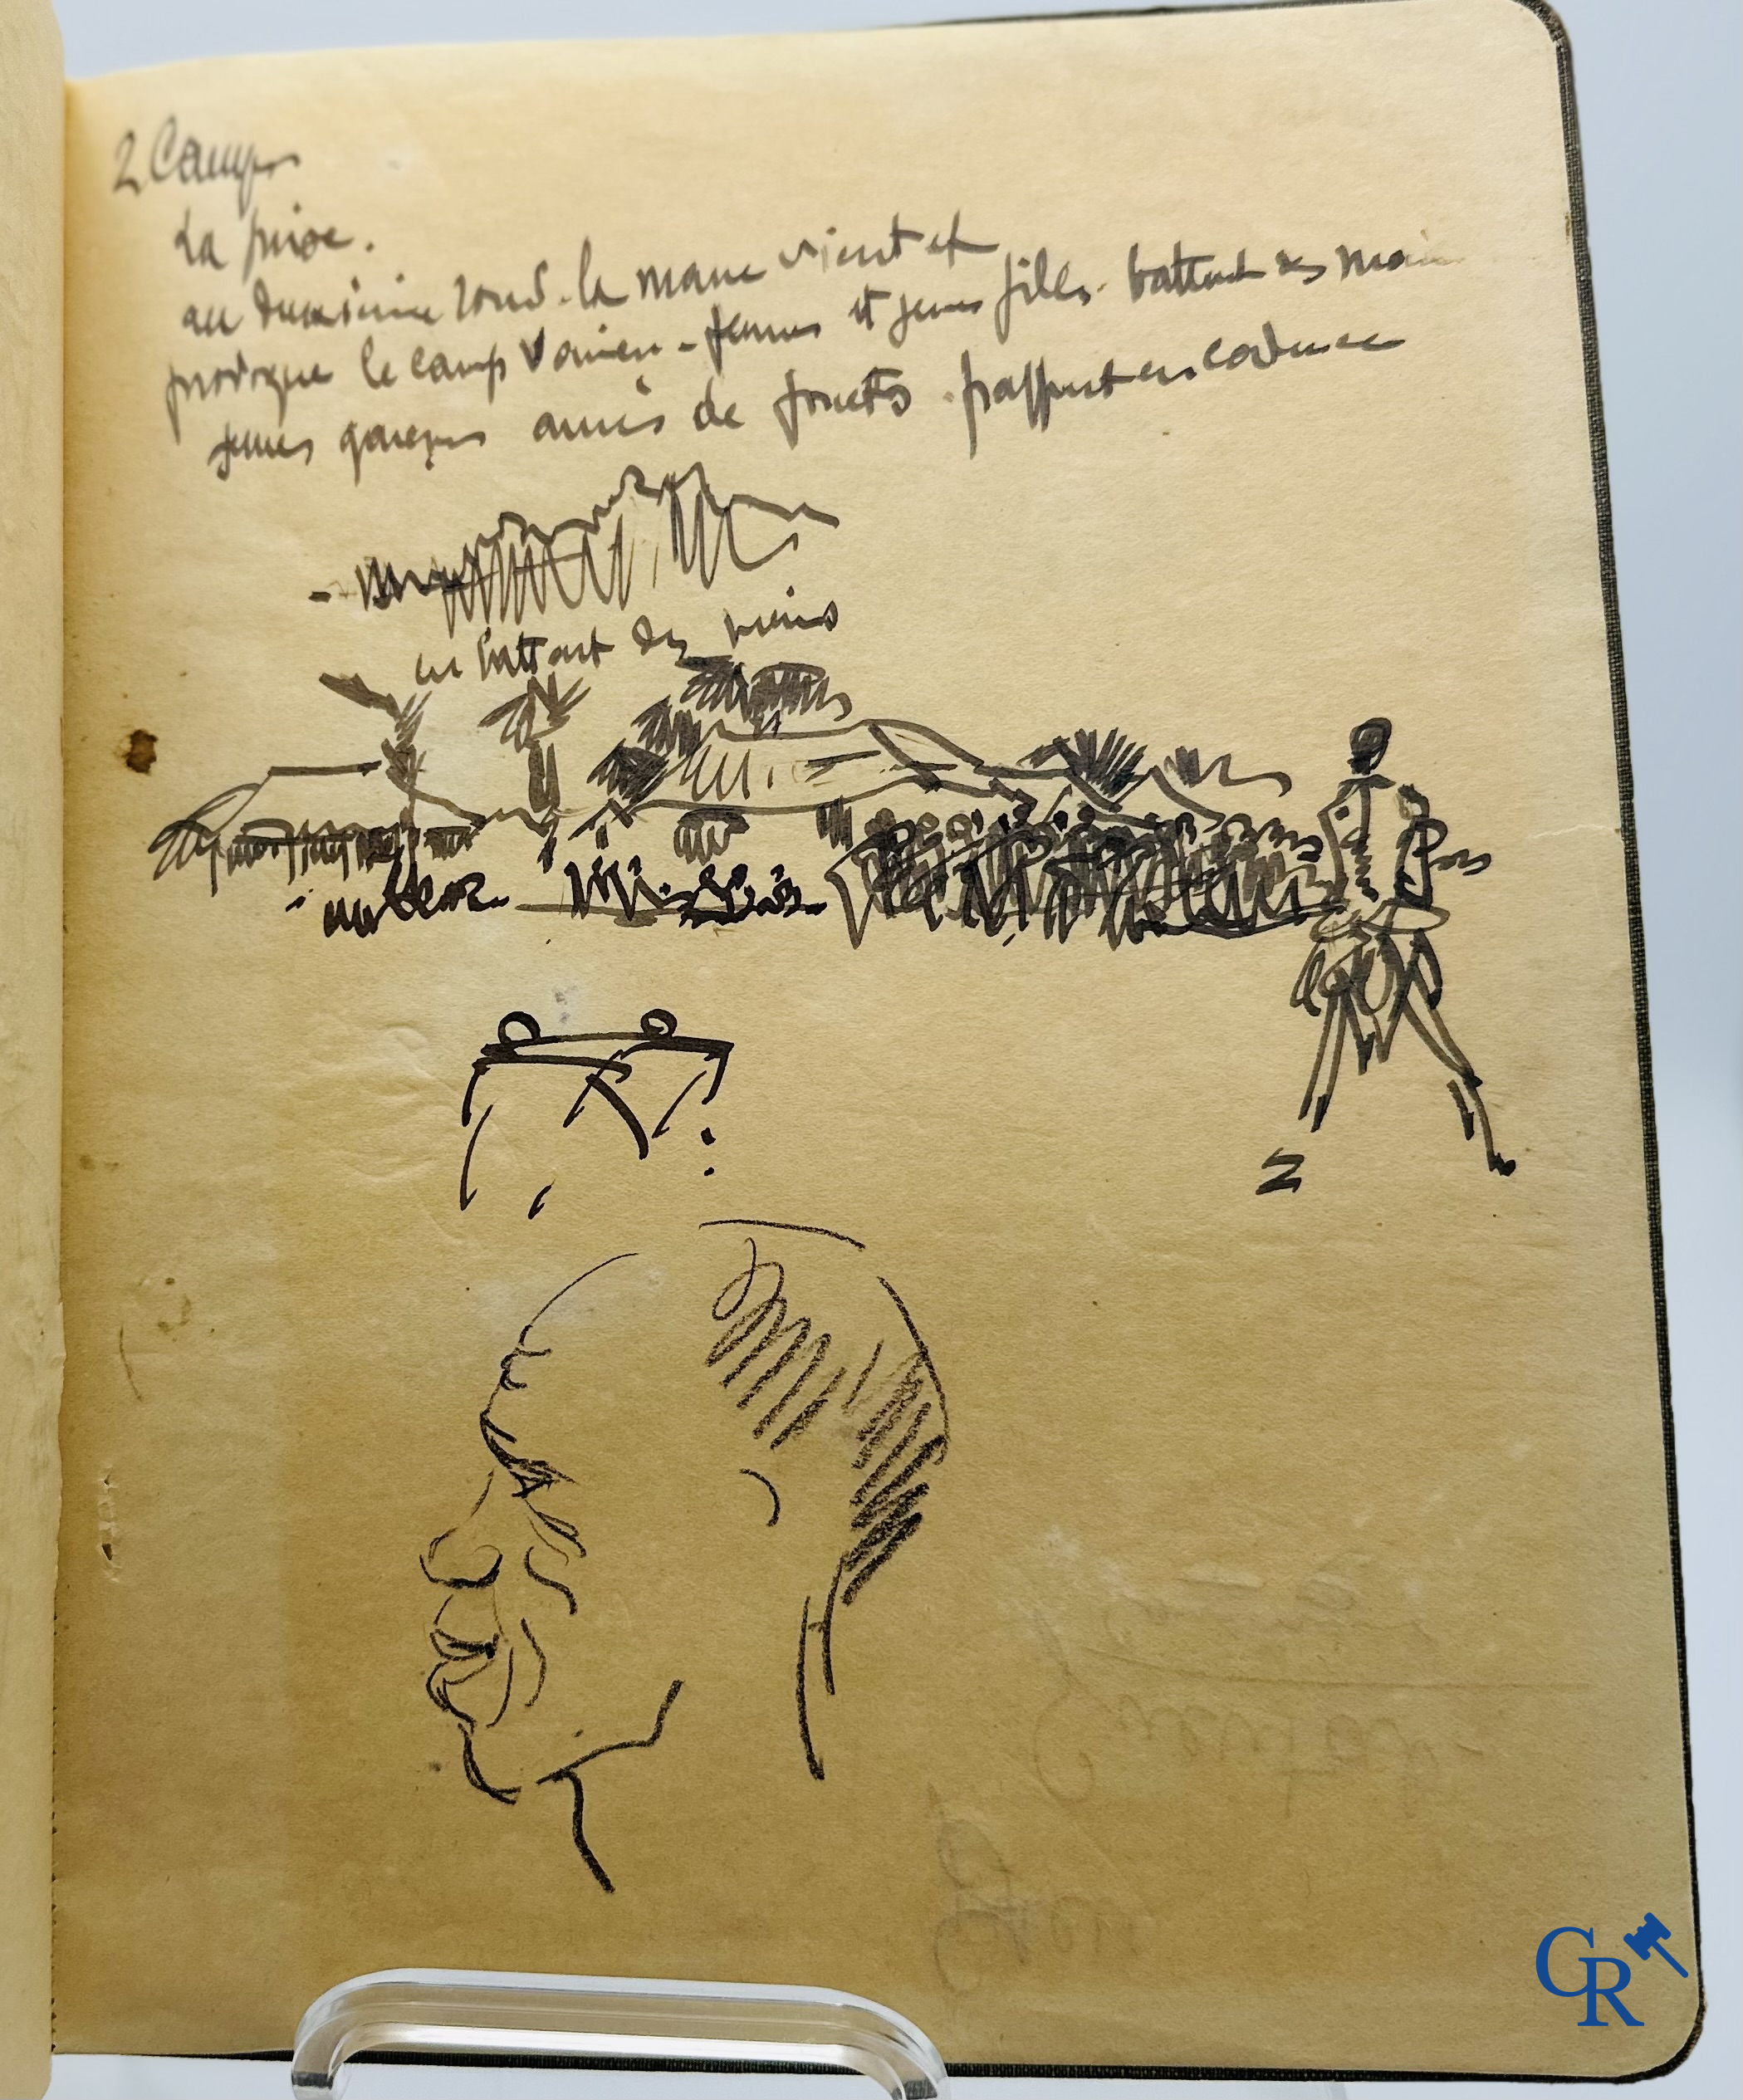 2 Camps
La prise.
au deuxième rond. la masse vient et
provoque le camp vaincu - femmes et jeunes filles. battent des main
jeunes garçons armés de fouets. frappent en cadence
en battant des mains
CR